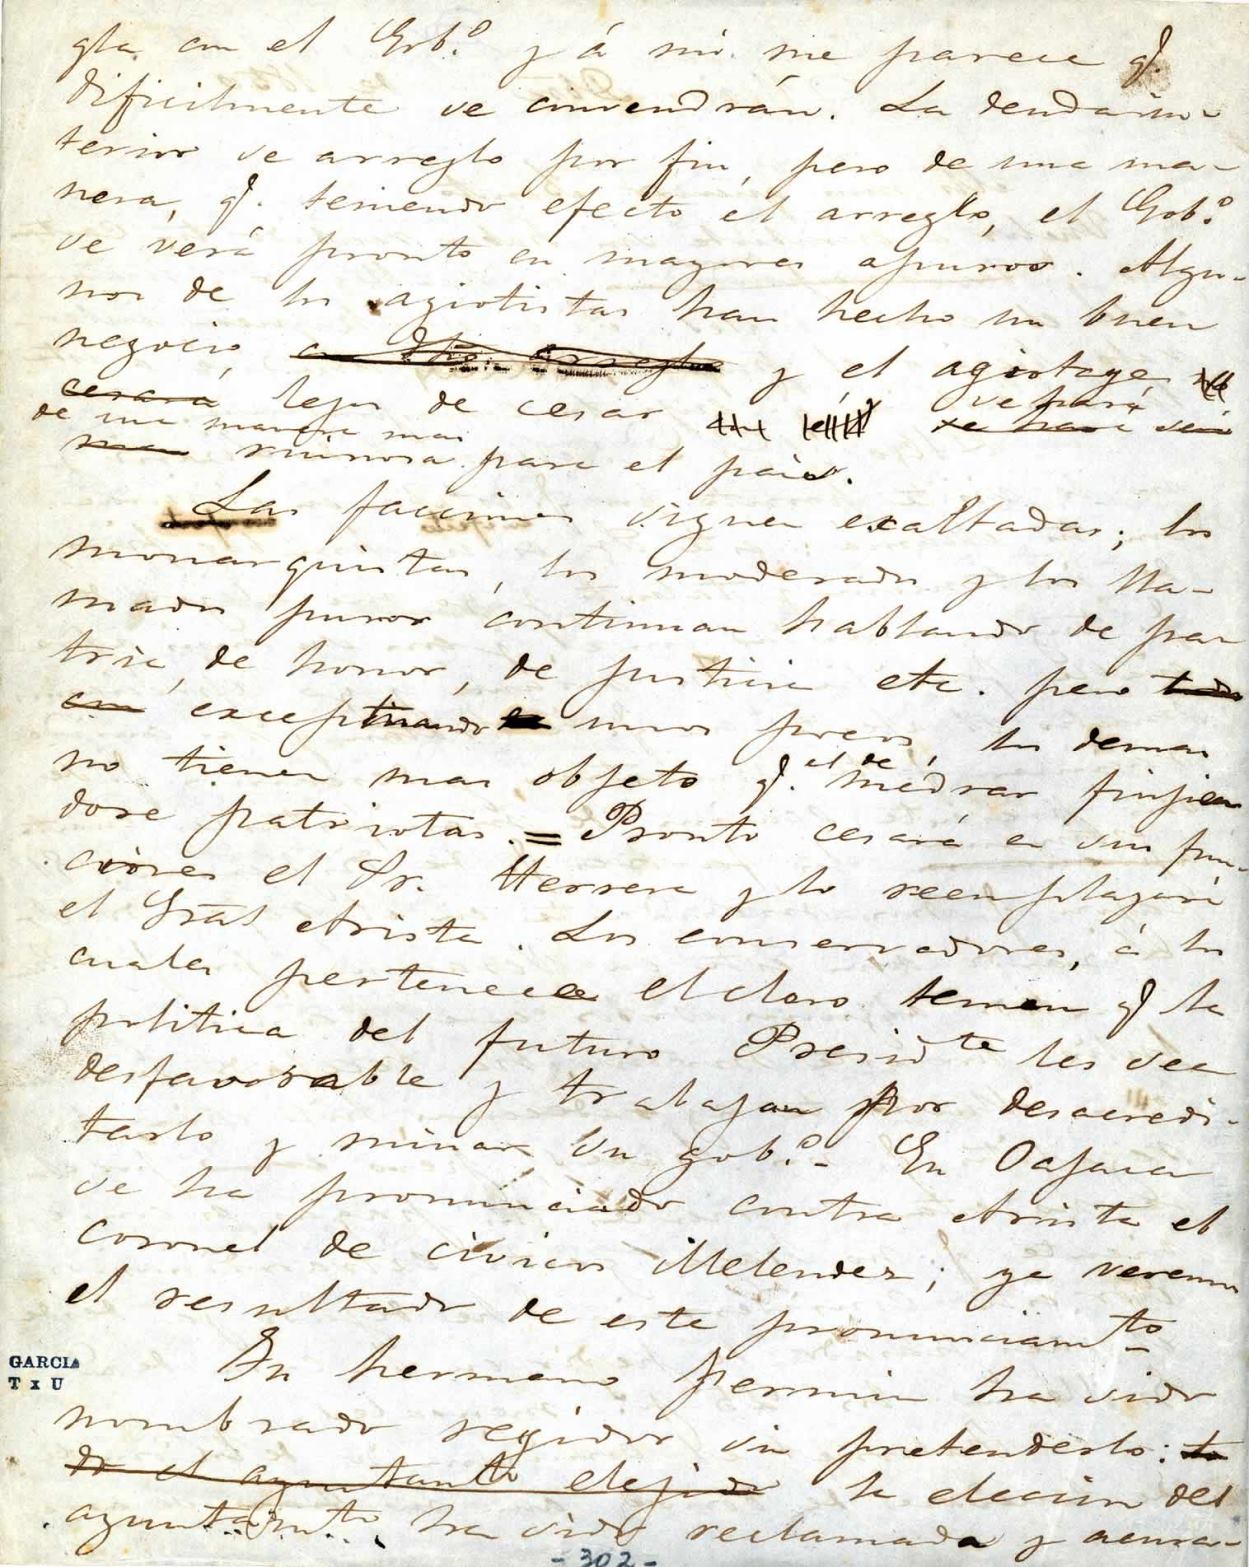 gla con el Gob.º y á mi me parece q.
dificilmente se convendrán. La deuda in-
terior se arreglo por fin, pero de una ma-
nera, q. teniendo efecto el arreglo, el Gob.º
se verá pronto en mayores apuros. Algu-
nos de los agiotistas han hecho un buen
negocio, y el agiotage,
cesará lejos de cesar se hará
de una manera mas
ruinosa para el pais.
Las facciones siguen exaltadas; los
monarquistas, los moderados y los lla-
mados puros continuan hablando de pa
tria, de honor, de justicia etc. pero todos
con exceptuando unos pocos, los demas
no tienen mas objeto q. el de medrar finjien
dose patriotas. = Pronto cesará en sus fun-
ciones el Sr. Herrera y lo reemplazará
el Gral Arista. Los conservadores, á los
cuales pertenece el clero temen q. la
politica del futuro Presidte les sea
desfavorable y trabajan por desacredi-
tarlo y minar su gob.º- En Oajaca
se ha pronunciado contra Arista el
coronel de civicos Melendez; ya veremos
el resultado de este pronunciamto
Su hermano Fermin ha sido
nombrado regidor sin pretenderlo: to
do el ayuntamto elejido la eleccion del
ayuntamto ha sido reclamada y acusa-
GARCIA
T x U
-302-